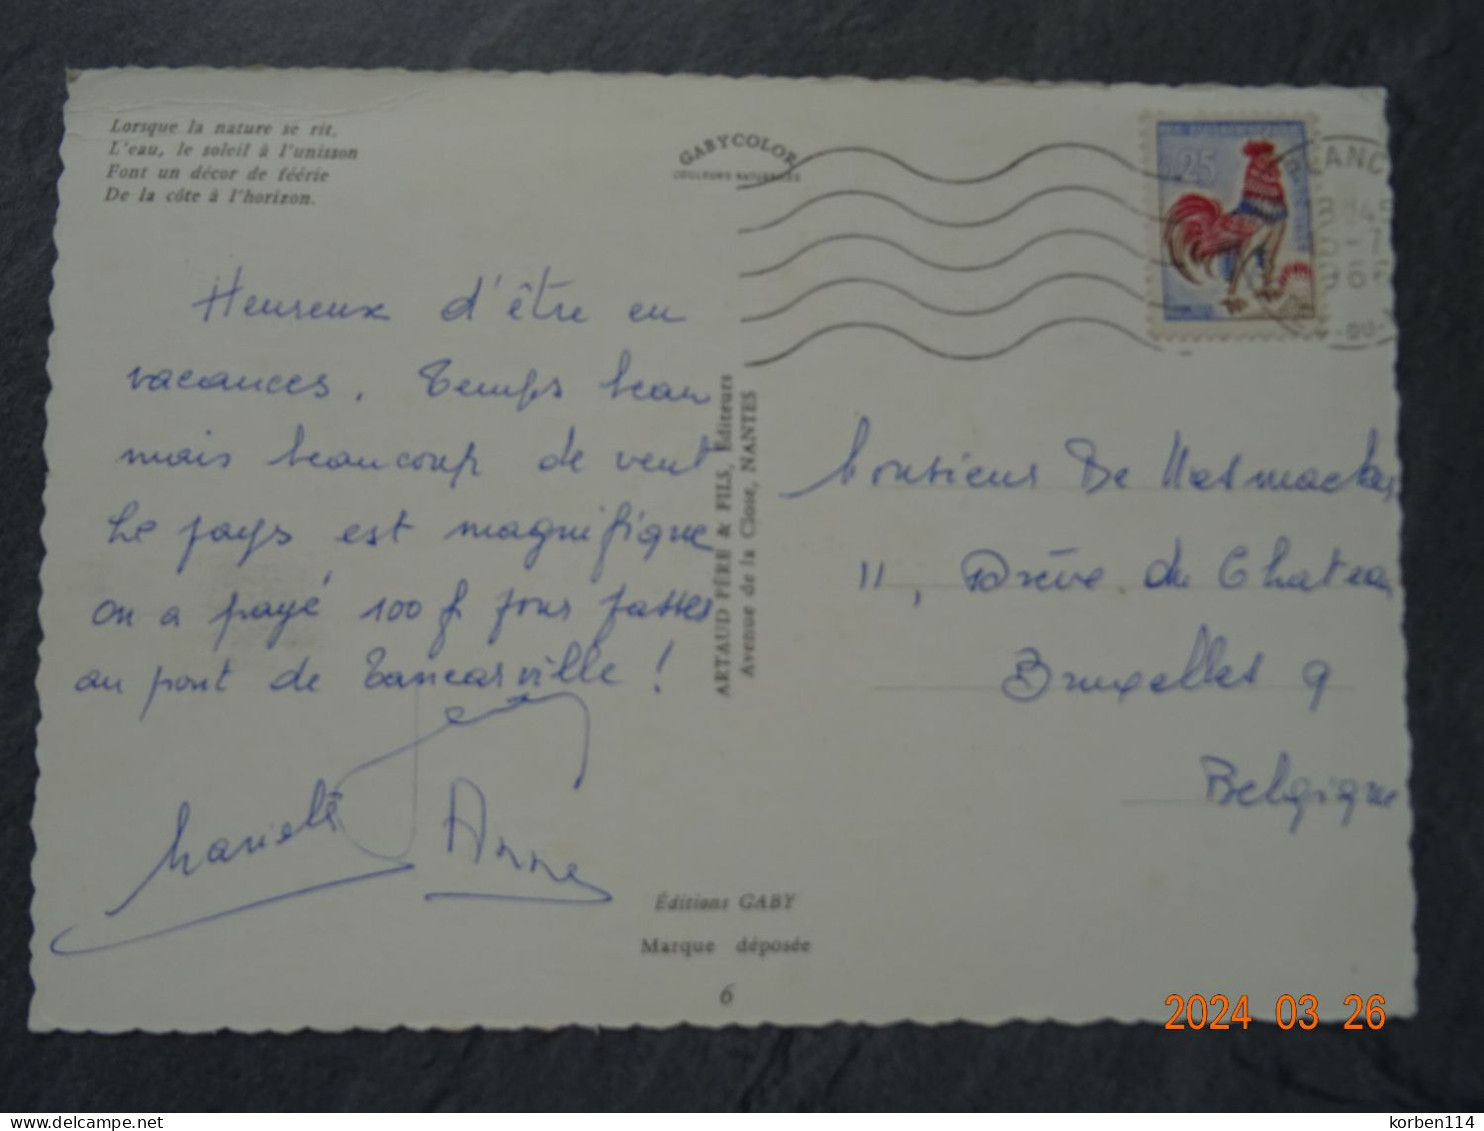 Lorsque la nature se rit,
L'eau, le soleil à l'unisson
Font un décor de féérie
De la côte à l'horizon.
GABYCOLOR
COULEURS NATURELLES
25
Heureux d'être en
vacances. Temps beau
mais beaucoup de vent
Le pays est magnifique
on a payé 100 f pour passer
au pont de Tancarville !
Anne
ARTAUD PÈRE & FILS, Éditeurs
Avenue de la Close, NANTES
Monsieur De
11, Drève du Chateau
Bruxelles 9
Belgique
Éditions GABY
Marque déposée
6
2024 03 26
korben114